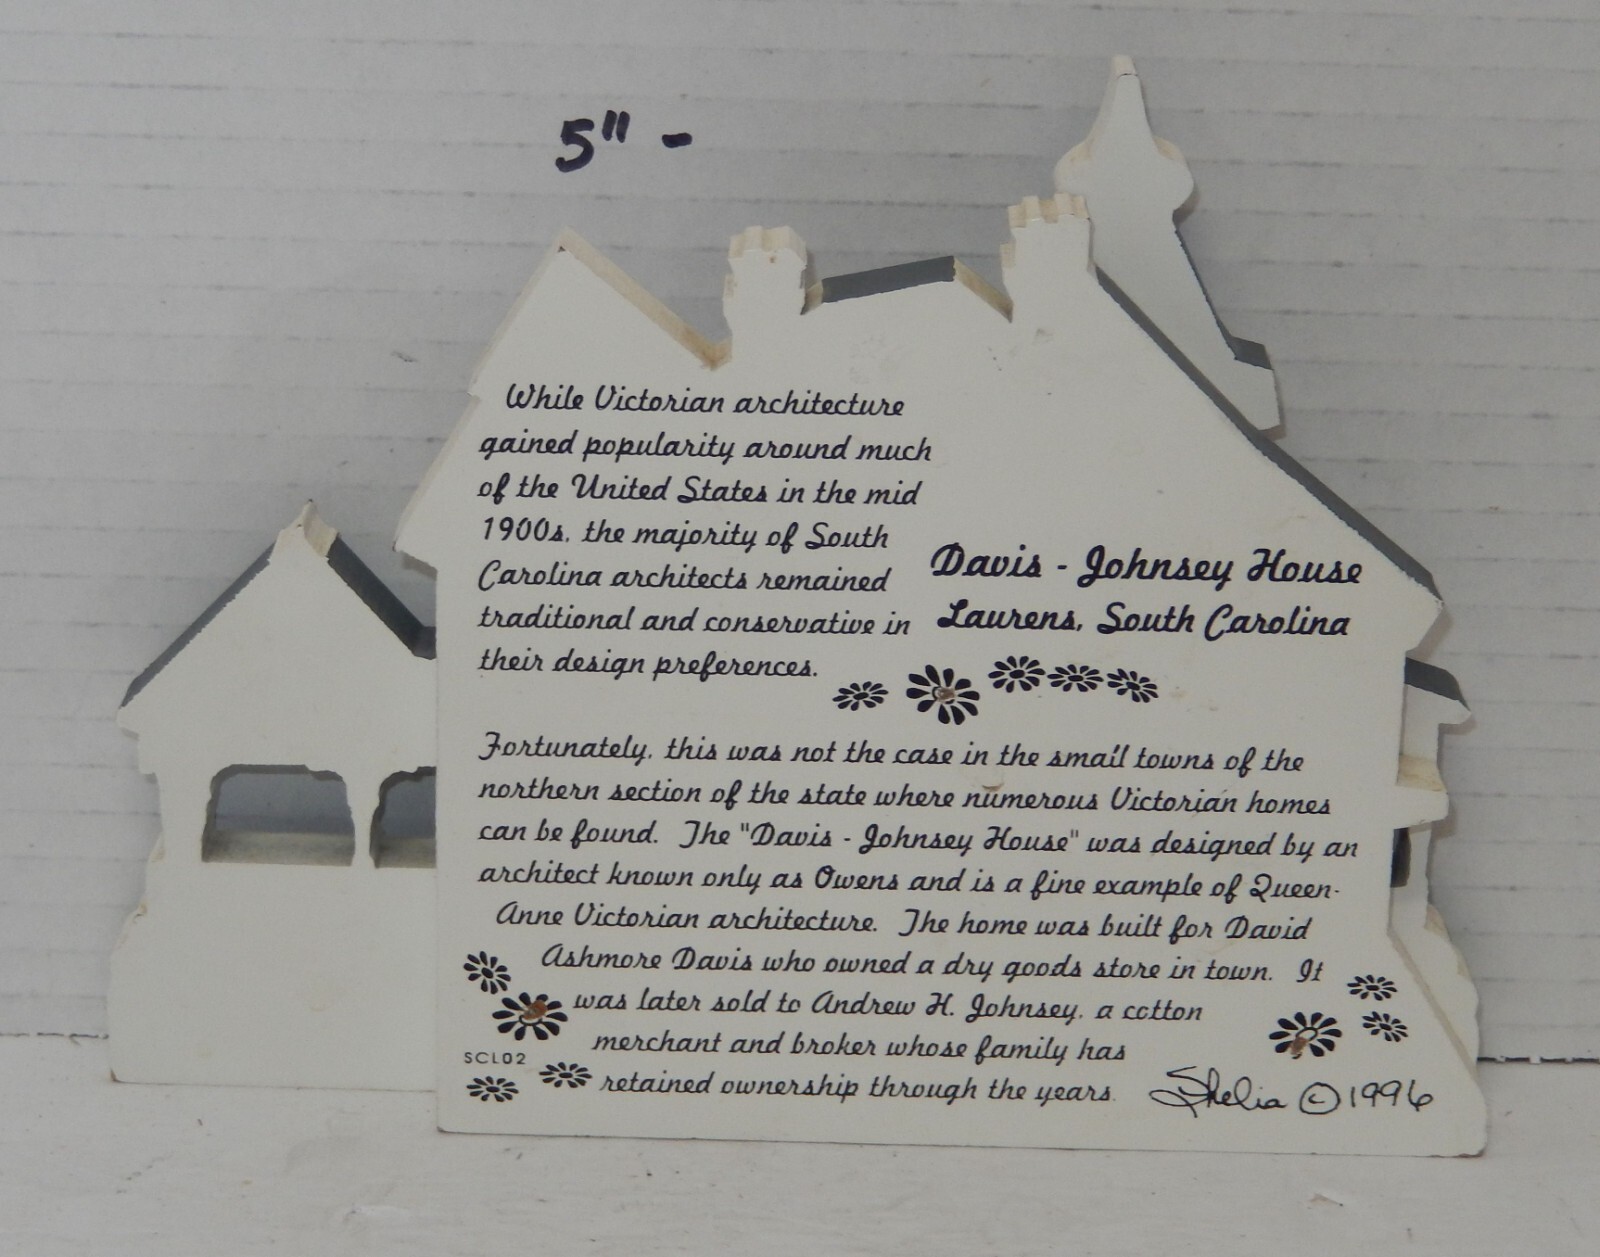 5" -
While Victorian architecture
gained popularity around much
of the United States in the mid
1900s, the majority of South
Carolina architects remained
traditional and conservative in
their design preferences.
Davis - Johnsey House
Laurens, South Carolina
Fortunately, this was not the case in the small towns of the
northern section of the state where numerous Victorian homes
can be found. The "Davis - Johnsey House" was designed by an
architect known only as Owens and is a fine example of Queen-
Anne Victorian architecture. The home was built for David
Ashmore Davis who owned a dry goods store in town. It
was later sold to Andrew H. Johnsey, a cotton
merchant and broker whose family has
retained ownership through the years.
SCL02
Shelia © 1996